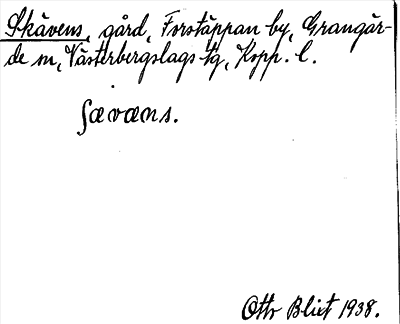 Skävens, gård, Forstäppan by, Grangär-
de sn, Västerbergslags tg, Kopp. l.
ʃævæns.
Otto Blixt 1938.